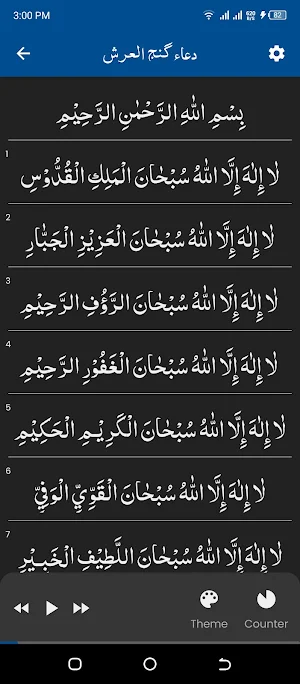 3:00 PM 620 B/s 82
دعاء گنج العرش
بِسْمِ اللهِ الرَّحْمٰنِ الرَّحِيْمِ
1
لَا إِلٰهَ إِلَّا اللهُ سُبْحَانَ الْمَلِكِ الْقُدُّوْسِ
2
لَا إِلٰهَ إِلَّا اللهُ سُبْحَانَ الْعَزِيْزِ الْجَبَّارِ
3
لَا إِلٰهَ إِلَّا اللهُ سُبْحَانَ الرَّؤُفِ الرَّحِيْمِ
4
لَا إِلٰهَ إِلَّا اللهُ سُبْحَانَ الْغَفُوْرِ الرَّحِيْمِ
5
لَا إِلٰهَ إِلَّا اللهُ سُبْحَانَ الْكَرِيْمِ الْحَكِيْمِ
6
لَا إِلٰهَ إِلَّا اللهُ سُبْحَانَ الْقَوِيِّ الْوَفِيِّ
7
لَا إِلٰهَ إِلَّا اللهُ سُبْحَانَ اللَّطِيْفِ الْخَبِيْرِ
Theme Counter